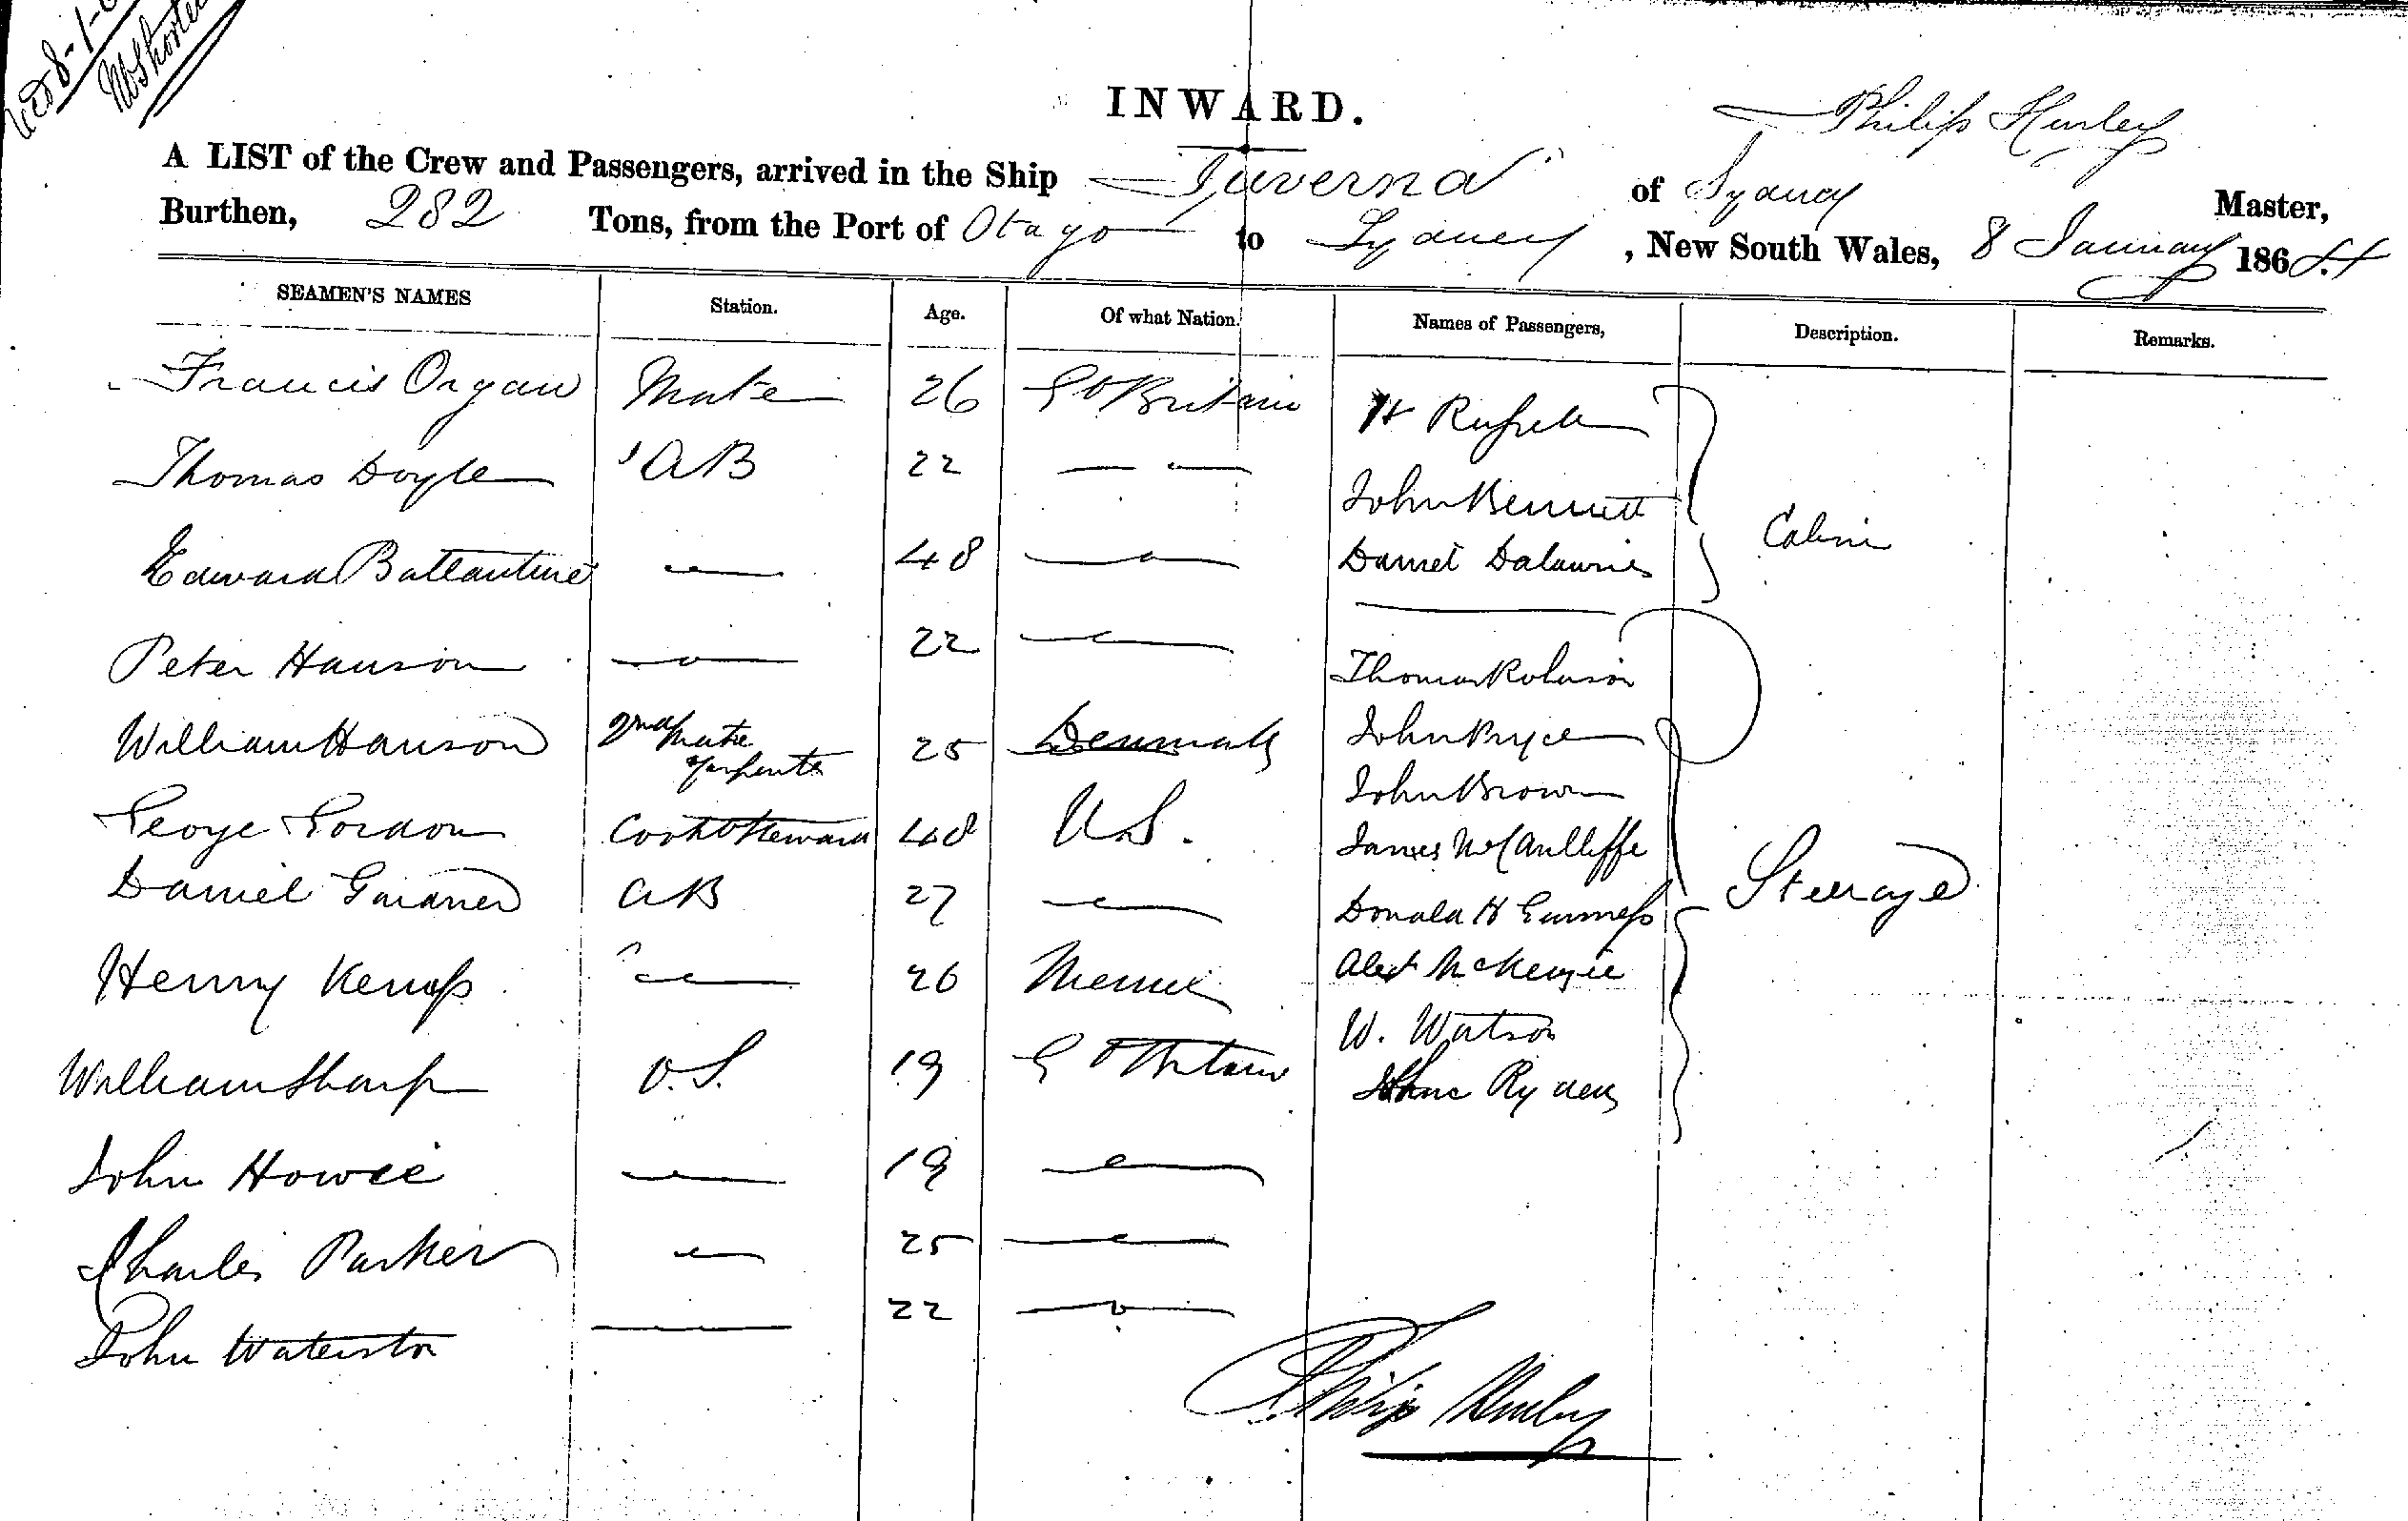 INWARD.
Philip Hurley
A LIST of the Crew and Passengers, arrived in the Ship Juverna of Sydney Master,
Burthen, 282 Tons, from the Port of Otago to Sydney, New South Wales, 8 January 1864
SEAMEN'S NAMES Station. Age. Of what Nation. Names of Passengers, Description. Remarks.
Francis Organ Mate 26 Gt Britain H Russell
Thomas Doyle AB 22 — — John Bennett
Edward Ballantine — 48 — Daniel Cabin
Peter Hanson — 22 — Thomas Robinson
William Hanson 2nd Mate Carpenter 25 Denmark John Pryce
John Brown
George Gordon Cook & Steward 48 U.S. James McAulliffe
Daniel Gardner AB 27 — Donald H Steerage
Henry Kemp — 26 Alexr McKenzie
W. Watson
William Sharp O.S. 19 Gt Britain
John Howie — 19 —
Charles Parker — 25 —
John Waterston — 22 —
Philip Hurley